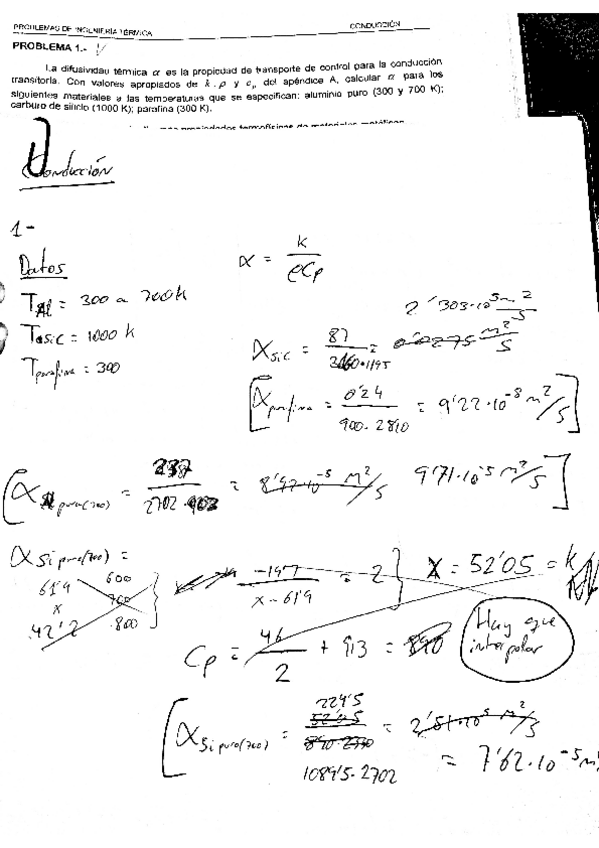 PROBLEMAS DE INGENIERÍA TÉRMICA CONDUCCIÓN
PROBLEMA 1.- 1
La difusividad térmica α es la propiedad de transporte de control para la conducción
transitoria. Con valores apropiados de k, ρ y cp del apéndice A, calcular α para los
siguientes materiales a las temperaturas que se especifican: aluminio puro (300 y 700 K);
carburo de silicio (1000 K); parafina (300 K).
propiedades termofísicas de materiales metálicos
Conducción
1-
Datos
α = k / ρCp
T Al = 300 a 700k
T SiC = 1000 k
T parafina = 300
2'303·10^-5 m^2/S
α SiC = 87 / 3160·1195 = m^2/S
[α parafina = 0'24 / 900·2890 = 9'22·10^-8 m^2/S]
[α Al puro(300) = 237 / 2702·903 = 8'97·10^-5 m^2/S 9'71·10^-5 m^2/S]
α Si puro(700) =
61'9 600
x 700
42'2 800
-19'7 / x-61'9 = 2 } X = 52'05 = k
Cp = 46 / 2 + 913 = 890
Hay que
interpolar
224'5
52'05
[α Si puro(700) = = 2'51·10^-5 m^2/S
1089'5·2702 = 7'62·10^-5 m